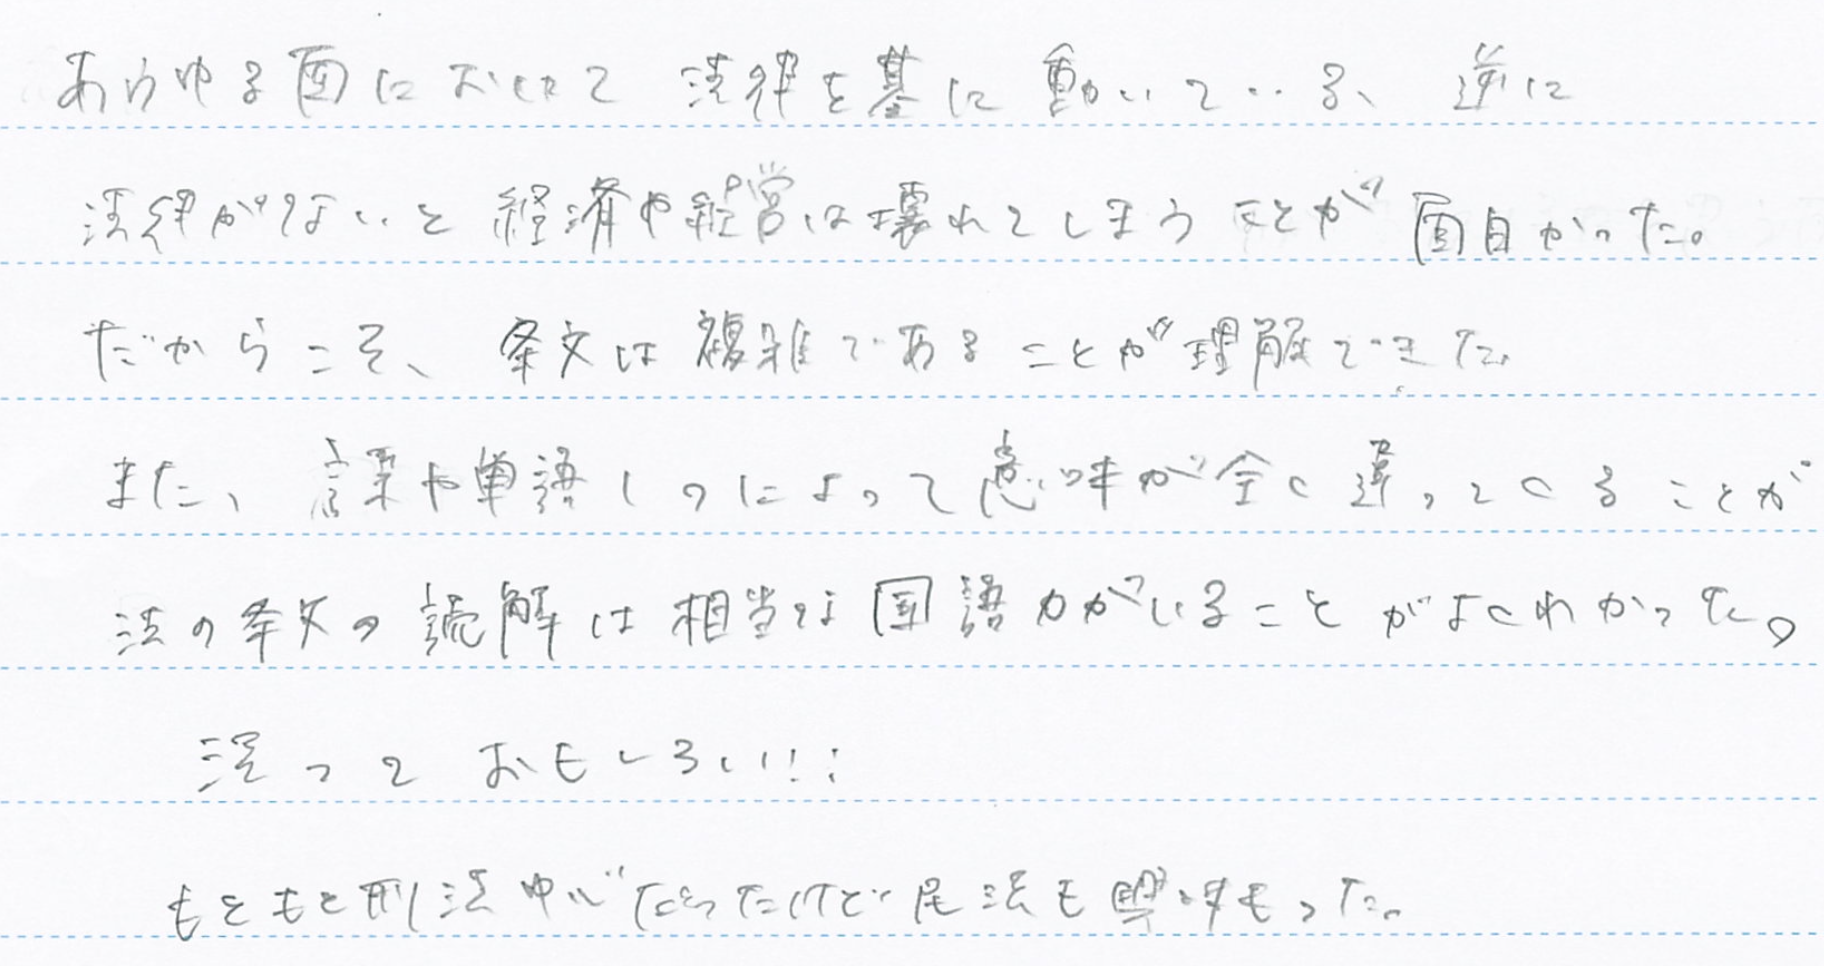 あらゆる面において 法律を基に動いている、逆に
法律がないと経済や経営は壊れてしまうことが面白かった。
だからこそ、条文は複雑であることが理解できた。
また、言葉や単語1つによって意味が全く違ってくることが
法の条文の読解は相当な国語力がいることがよくわかった。
法っておもしろい!!!
もともと刑法中心だったけど民法も興味もった。